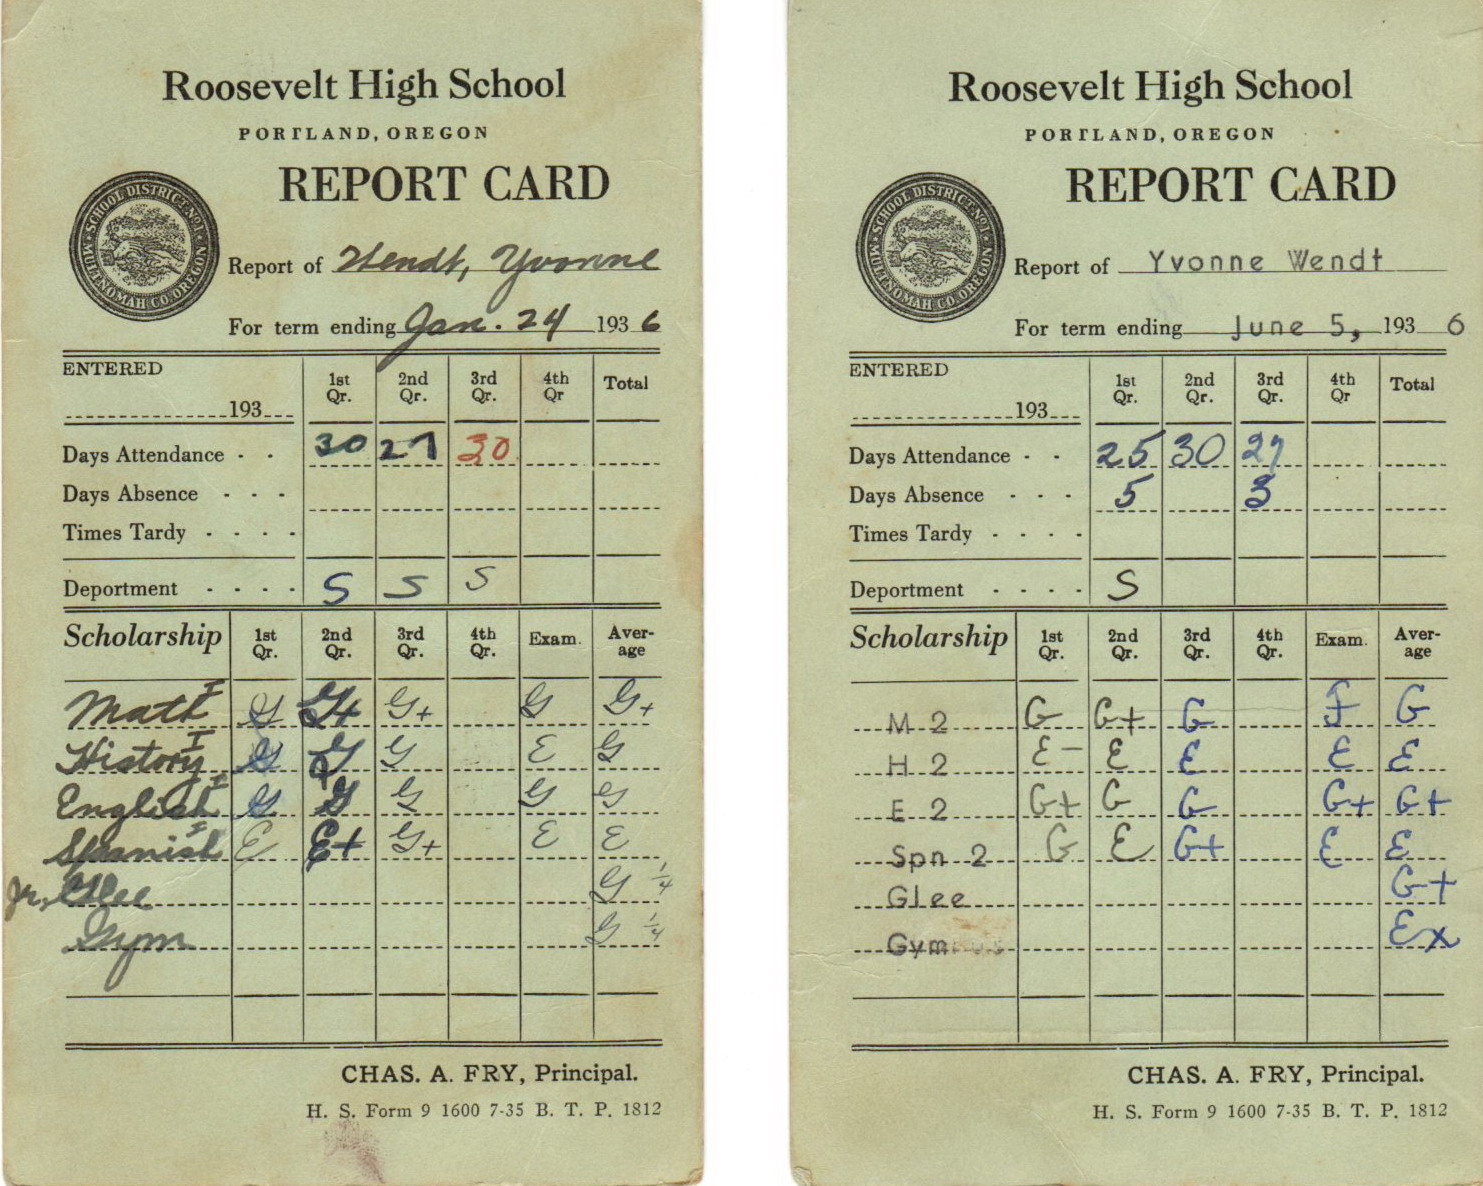 Roosevelt High School
PORTLAND, OREGON
REPORT CARD
SCHOOL DISTRICT No 1
MULTNOMAH CO. OREGON
Report of Wendt, Yvonne
For term ending Jan. 24 1936
ENTERED 1st Qr. 2nd Qr. 3rd Qr. 4th Qr Total
193
Days Attendance - - 30 27 30
Days Absence - - -
Times Tardy - - - -
Deportment - - - - S S S
Scholarship 1st Qr. 2nd Qr. 3rd Qr. 4th Qr. Exam. Aver-age
Math I G G+ G+ G G+
History I G G G E G
English I G G G G G
Spanish I E E+ G+ E E
Jr. Glee G 1/4
Gym G 1/4
CHAS. A. FRY, Principal.
H. S. Form 9 1600 7-35 B. T. P. 1812
Roosevelt High School
PORTLAND, OREGON
REPORT CARD
SCHOOL DISTRICT No 1
MULTNOMAH CO. OREGON
Report of Yvonne Wendt
For term ending June 5, 1936
ENTERED 1st Qr. 2nd Qr. 3rd Qr. 4th Qr Total
193
Days Attendance - - 25 30 27
Days Absence - - - 5 3
Times Tardy - - - -
Deportment - - - - S
Scholarship 1st Qr. 2nd Qr. 3rd Qr. 4th Qr. Exam. Aver-age
M 2 G G+ G F G
H 2 E- E E E E
E 2 G+ G G G+ G+
Spn 2 G E G+ E E
Glee G+
Gym Ex
CHAS. A. FRY, Principal.
H. S. Form 9 1600 7-35 B. T. P. 1812